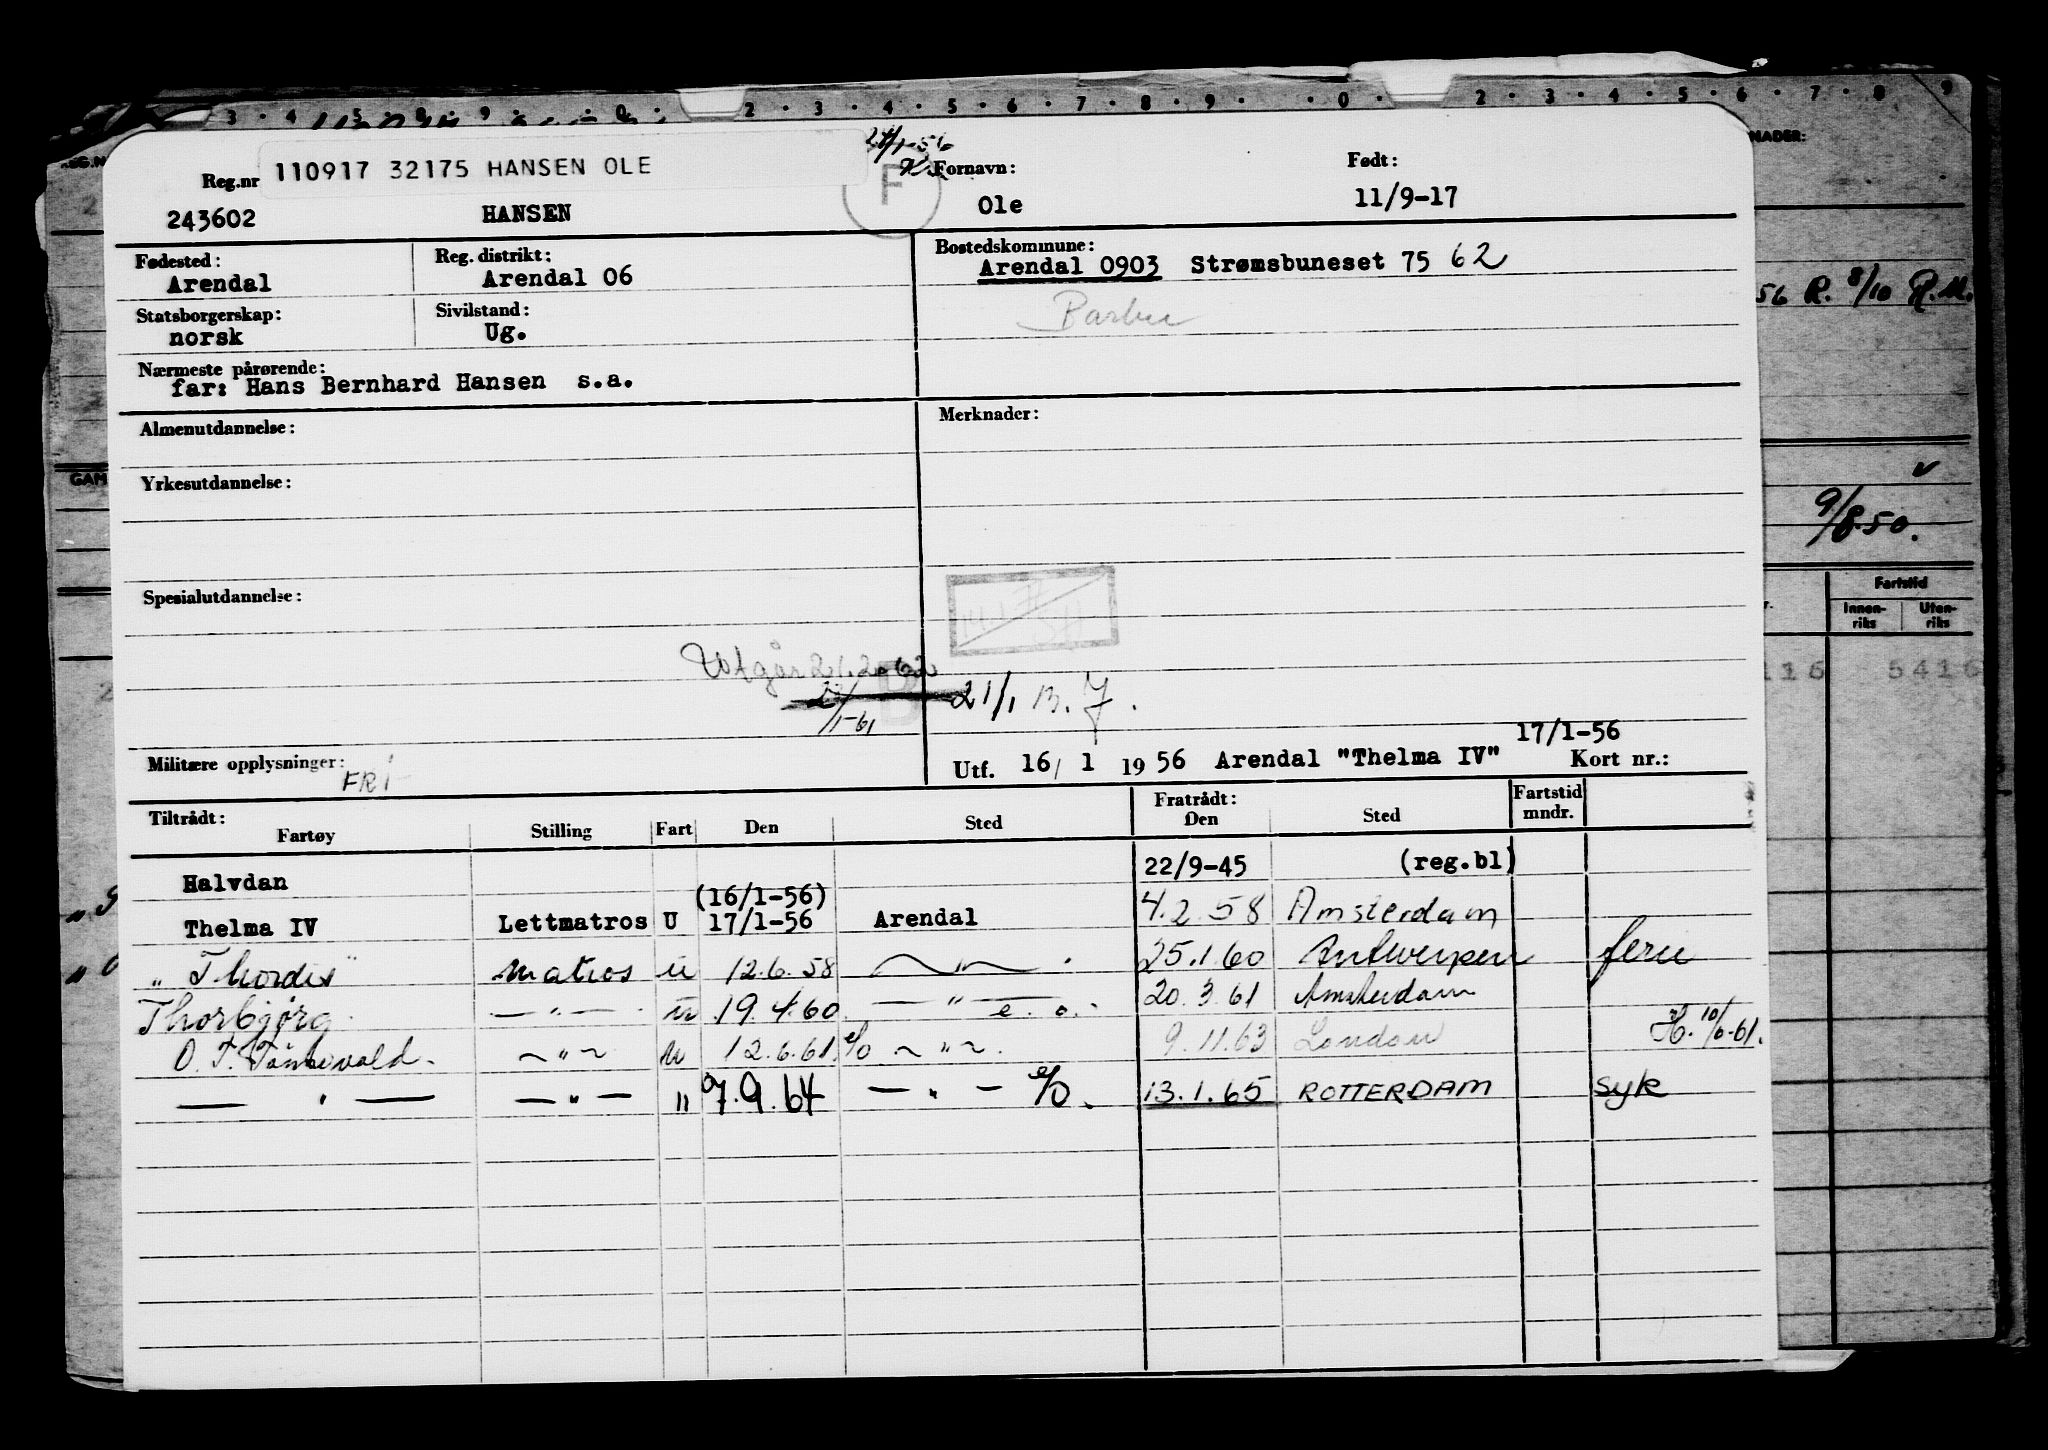 3 4 5 8 9 0 2 3 4 5 6 7 8 9 0 2 3 4 5 6 7 8 9
24/1-56
Reg.nr 110917 32175 HANSEN OLE F Fornavn: Født:
243602 HANSEN Ole 11/9-17
Fødested: Reg. distrikt: Bostedskommune:
Arendal Arendal 06 Arendal 0903 Strømsbuneset 75 62
56 R. 8/10 R.M.
Statsborgerskap: Sivilstand: Barbu
norsk Ug.
Nærmeste pårørende:
far: Hans Bernhard Hansen s.a.
Almenutdannelse: Merknader:
Yrkesutdannelse:
GAM
9/8.50.
Fartstid
Innen-riks Uten-riks
Spesialutdannelse:
Utgår 21.2.62
116 5416
B
1/1-61 21/1 B. 7.
17/1-56
Militære opplysninger: FRI Utf. 16/ 1 1956 Arendal "Thelma IV" Kort nr.:
Tiltrådt: Fratrådt: Fartstid
Fartøy Stilling Fart Den Sted Den Sted mndr.
Halvdan 22/9-45 (reg.bl)
(16/1-56)
Thelma IV Lettmatros U 17/1-56 Arendal 4.2.58 Amsterdam
" Thordis" Matros u 12.6.58 — " — . 25.1.60 Antwerpen ferie
Thorbjørg — " — u 19.4.60 — " — e.o. 20.3.61 Amsterdam
O. T. Tønnevold. — " — u 12.6.61. e/o — " — 9.11.63 London H. 10/6-61.
— " — — " — " 7.9.64 — " — e/o. 13.1.65 ROTTERDAM syk